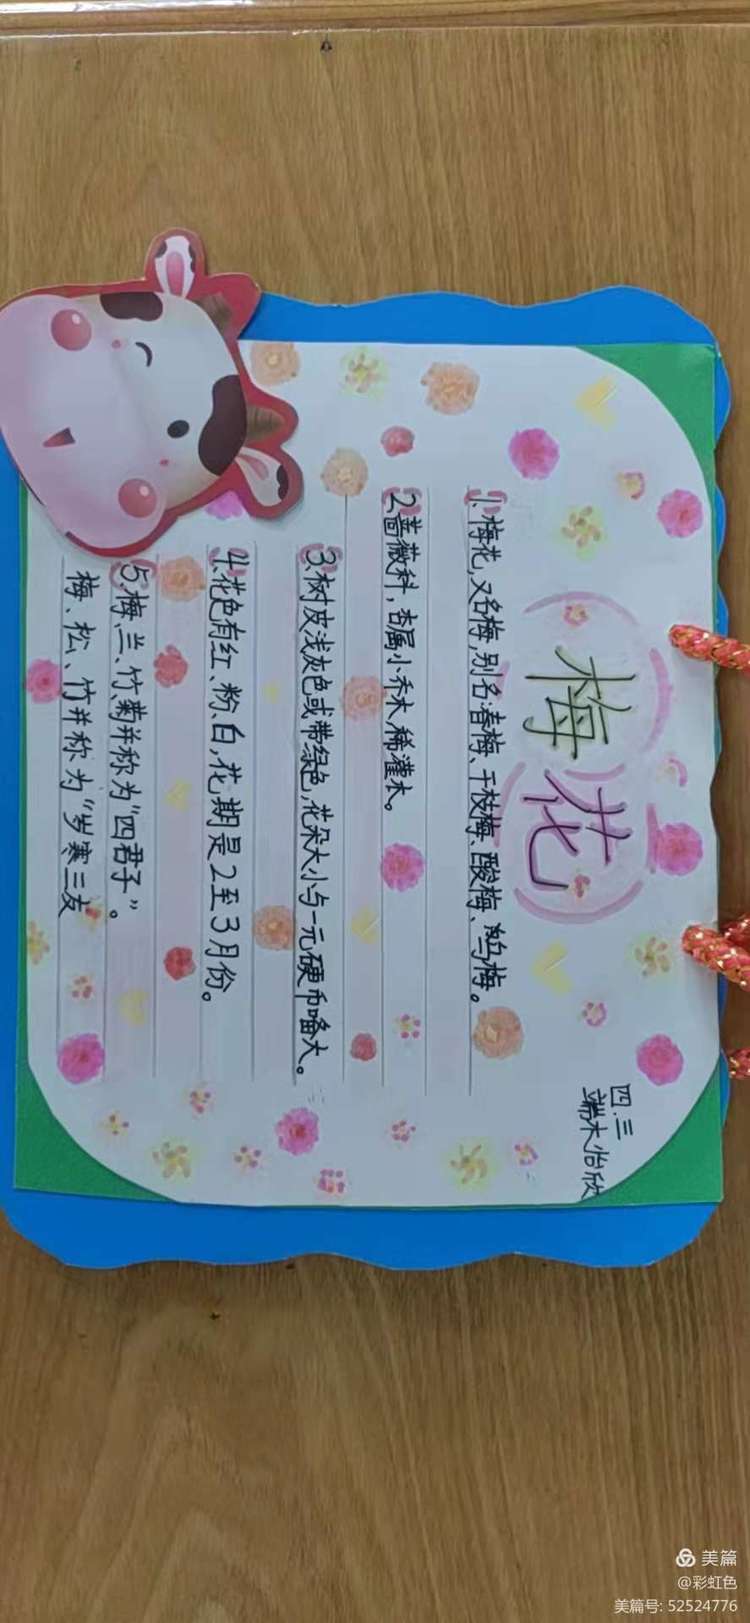 四.三
端木怡欣
梅花
1.梅花,又名梅,别名春梅、干枝梅、酸梅、乌梅。
2.蔷薇科,杏属小乔木,稀灌木。
3.树皮浅灰色或带绿色,花朵大小与一元硬币嗆大。
4.花色有红、粉、白,花期是2至3月份。
5.梅、兰、竹、菊并称为“四君子”。
梅、松、竹并称为“岁寒三友
美篇
@彩虹色
美篇号: 52524776